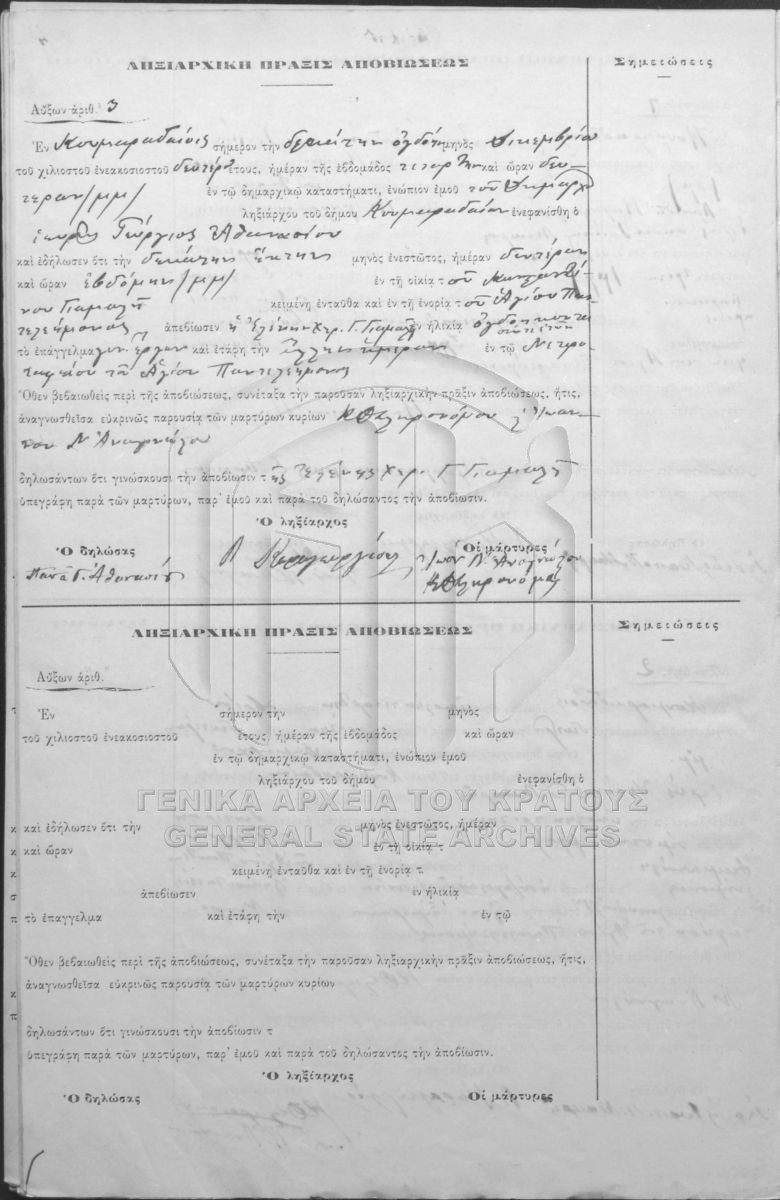 ΛΗΞΙΑΡΧΙΚΗ ΠΡΑΞΙΣ ΑΠΟΒΙΩΣΕΩΣ
Σημειώσεις
Αὔξων ἀριθ. 3
Ἐν Κουμαραδαίοις σήμερον τὴν δεκάτην ὀγδόην μηνὸς Δεκεμβρίου
τοῦ χιλιοστοῦ ἐνεακοσιοστοῦ δευτέρου ἔτους, ἡμέραν τῆς ἑβδομάδος τετάρτην καὶ ὥραν δευ-
τέραν /μμ/ ἐν τῷ δημαρχικῷ καταστήματι, ἐνώπιον ἐμοῦ τοῦ Δημάρχου
ληξιάρχου τοῦ δήμου Κουμαραδαίων ἐνεφανίσθη ὁ
ἱερεὺς Γεώργιος Ἀθανασίου
καὶ ἐδήλωσεν ὅτι τὴν δεκάτην ἕκτην μηνὸς ἐνεστῶτος, ἡμέραν δευτέραν
καὶ ὥραν ἑβδόμην /μμ/ ἐν τῇ οἰκίᾳ τοῦ Κωνσταντί-
νου Γιαμαλῆ κειμένῃ ἐνταῦθα καὶ ἐν τῇ ἐνορίᾳ τοῦ Ἁγίου Παν
τελεήμονος ἀπεβίωσεν ἡ Ἑλένη χηρ. Γ. Γιαμαλῆ ἐν ἡλικίᾳ ὀγδοήκοντα
τὸ ἐπάγγελμα καὶ ἐτάφη τὴν ἄλλην ἡμέραν ἐν τῷ Νεκρο
ταφείου τοῦ Ἁγίου Παντελεήμονος
Ὅθεν βεβαιωθεὶς περὶ τῆς ἀποβιώσεως, συνέταξα τὴν παροῦσαν ληξιαρχικὴν πρᾶξιν ἀποβιώσεως, ἥτις,
ἀναγνωσθεῖσα εὐκρινῶς παρουσίᾳ τῶν μαρτύρων κυρίων Κ Θ Κληρονόμου & Ἰωάν-
νου Ν Ἀναγνώστου
δηλωσάντων ὅτι γινώσκουσι τὴν ἀποβίωσιν τῆς Ἑλένης χηρ. Γ Γιαμαλῆ
ὑπεγράφη παρὰ τῶν μαρτύρων, παρ' ἐμοῦ καὶ παρὰ τοῦ δηλώσαντος τὴν ἀποβίωσιν.
Ὁ ληξίαρχος
Ὁ δηλώσας
Οἱ μάρτυρες
Παπᾶ Γ. Ἀθανασίου
ΛΗΞΙΑΡΧΙΚΗ ΠΡΑΞΙΣ ΑΠΟΒΙΩΣΕΩΣ
Σημειώσεις
Αὔξων ἀριθ.
Ἐν σήμερον τὴν μηνὸς
τοῦ χιλιοστοῦ ἐνεακοσιοστοῦ ἔτους, ἡμέραν τῆς ἑβδομάδος καὶ ὥραν
ἐν τῷ δημαρχικῷ καταστήματι, ἐνώπιον ἐμοῦ
ληξιάρχου τοῦ δήμου ἐνεφανίσθη ὁ
ΓΕΝΙΚΑ ΑΡΧΕΙΑ ΤΟΥ ΚΡΑΤΟΥΣ
καὶ ἐδήλωσεν ὅτι τὴν μηνὸς ἐνεστῶτος, ἡμέραν
GENERAL STATE ARCHIVES
καὶ ὥραν ἐν τῇ οἰκίᾳ τ
κειμένῃ ἐνταῦθα καὶ ἐν τῇ ἐνορίᾳ τ
ἀπεβίωσεν ἐν ἡλικίᾳ
τὸ ἐπάγγελμα καὶ ἐτάφη τὴν ἐν τῷ
Ὅθεν βεβαιωθεὶς περὶ τῆς ἀποβιώσεως, συνέταξα τὴν παροῦσαν ληξιαρχικὴν πρᾶξιν ἀποβιώσεως, ἥτις,
ἀναγνωσθεῖσα εὐκρινῶς παρουσίᾳ τῶν μαρτύρων κυρίων
δηλωσάντων ὅτι γινώσκουσι τὴν ἀποβίωσιν τ
ὑπεγράφη παρὰ τῶν μαρτύρων, παρ' ἐμοῦ καὶ παρὰ τοῦ δηλώσαντος τὴν ἀποβίωσιν.
Ὁ ληξίαρχος
Ὁ δηλώσας
Οἱ μάρτυρες